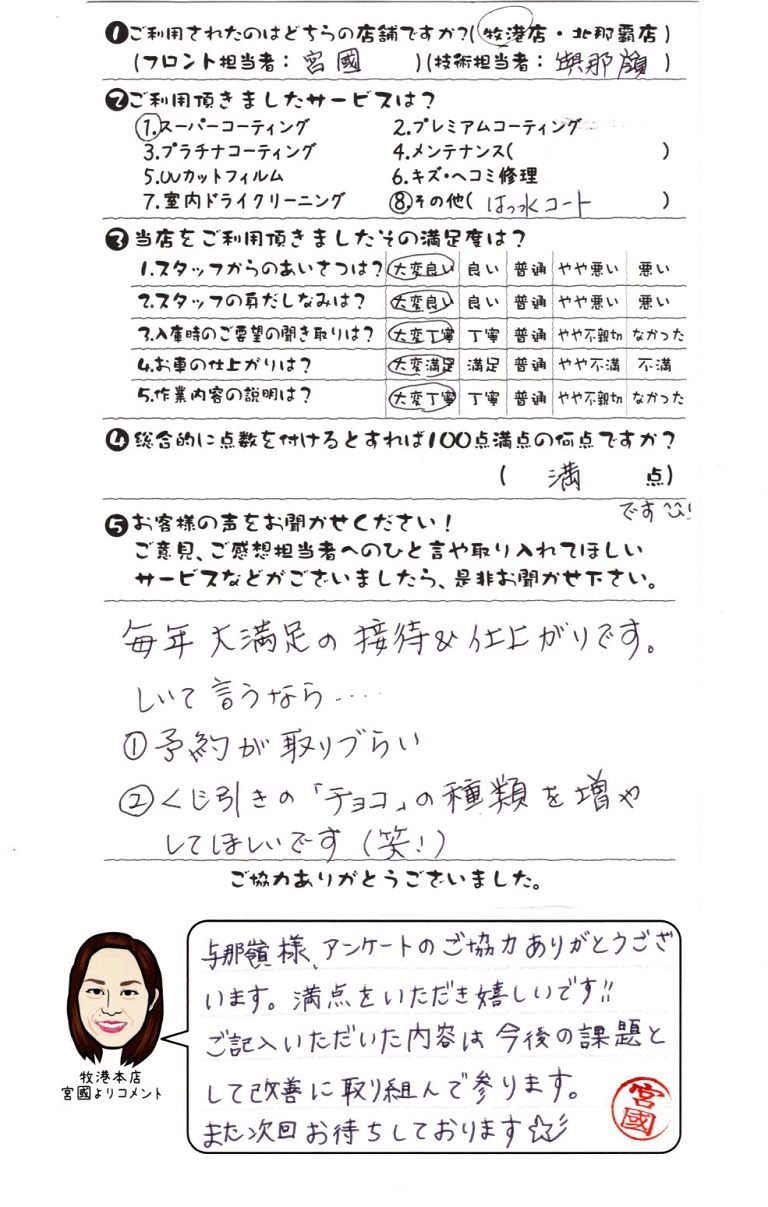 ❶ご利用されたのはどちらの店舗ですか?(牧港店・北那覇店)
(フロント担当者: 宮國 )(技術担当者: 與那嶺 )
❷ご利用頂きましたサービスは?
1.スーパーコーティング 2.プレミアムコーティング
3.プラチナコーティング 4.メンテナンス( )
5.UVカットフィルム 6.キズ・ヘコミ修理
7.室内ドライクリーニング 8.その他( はっ水コート )
❸当店をご利用頂きましたその満足度は?
1.スタッフからのあいさつは? 大変良い 良い 普通 やや悪い 悪い
2.スタッフの身だしなみは? 大変良い 良い 普通 やや悪い 悪い
3.入庫時のご要望の聞き取りは? 大変丁寧 丁寧 普通 やや不親切 なかった
4.お車の仕上がりは? 大変満足 満足 普通 やや不満 不満
5.作業内容の説明は? 大変丁寧 丁寧 普通 やや不親切 なかった
❹総合的に点数を付けるとすれば100点満点の何点ですか?
( 満 点)
です
❺お客様の声をお聞かせください!
ご意見、ご感想担当者へのひと言や取り入れてほしい
サービスなどがございましたら、是非お聞かせ下さい。
毎年 大満足の 接待&仕上がりです。
しいて言うなら‥‥
①予約が取りづらい
②くじ引きの「チョコ」の種類を増や
してほしいです(笑!)
ご協力ありがとうございました。
与那嶺様、アンケートのご協力ありがとうござ
います。満点をいただき嬉しいです!!
ご記入いただいた内容は今後の課題と
して改善に取り組んで参ります。
また次回お待ちしております☆彡
宮國
牧港本店
宮國よりコメント